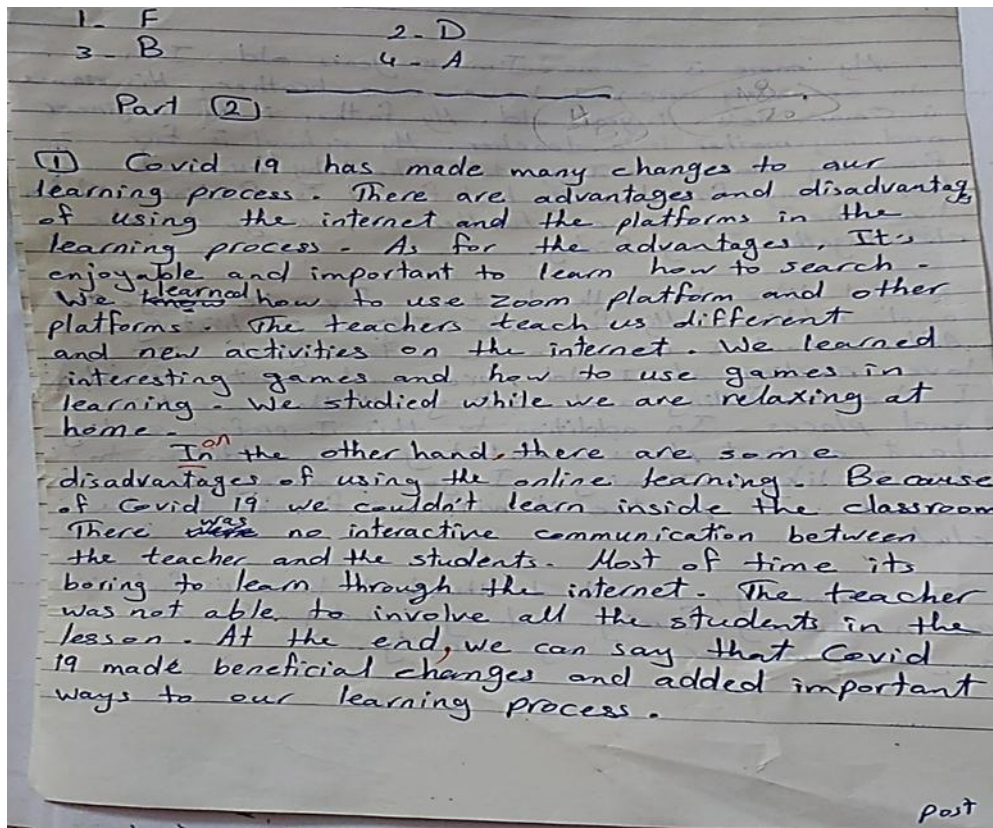 1- F 2- D
3- B 4- A
Part 2
1 Covid 19 has made many changes to our
learning process. There are advantages and disadvantag
es
of using the internet and the platforms in the
learning process. As for the advantages, It's
enjoyable and important to learn how to search.
We learned how to use zoom platform and other
platforms. The teachers teach us different
and new activities on the internet. We learned
interesting games and how to use games in
learning. We studied while we are relaxing at
home.
on
In the other hand, there are some
disadvantages of using the online learning. Because
of Covid 19 we couldn't learn inside the classroom
There was no interactive communication between
the teacher and the students. Most of time its
boring to learn through the internet. The teacher
was not able to involve all the students in the
lesson. At the end, we can say that Covid
19 made beneficial changes and added important
ways to our learning process.
post